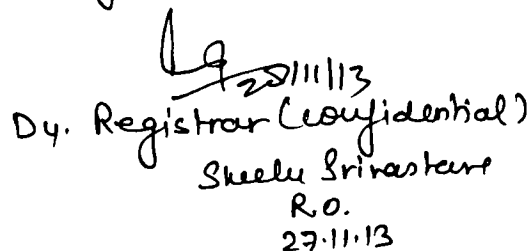 28/11/13
Dy. Registrar (Confidential)
Sheelu Srivastava
R.O.
27.11.13